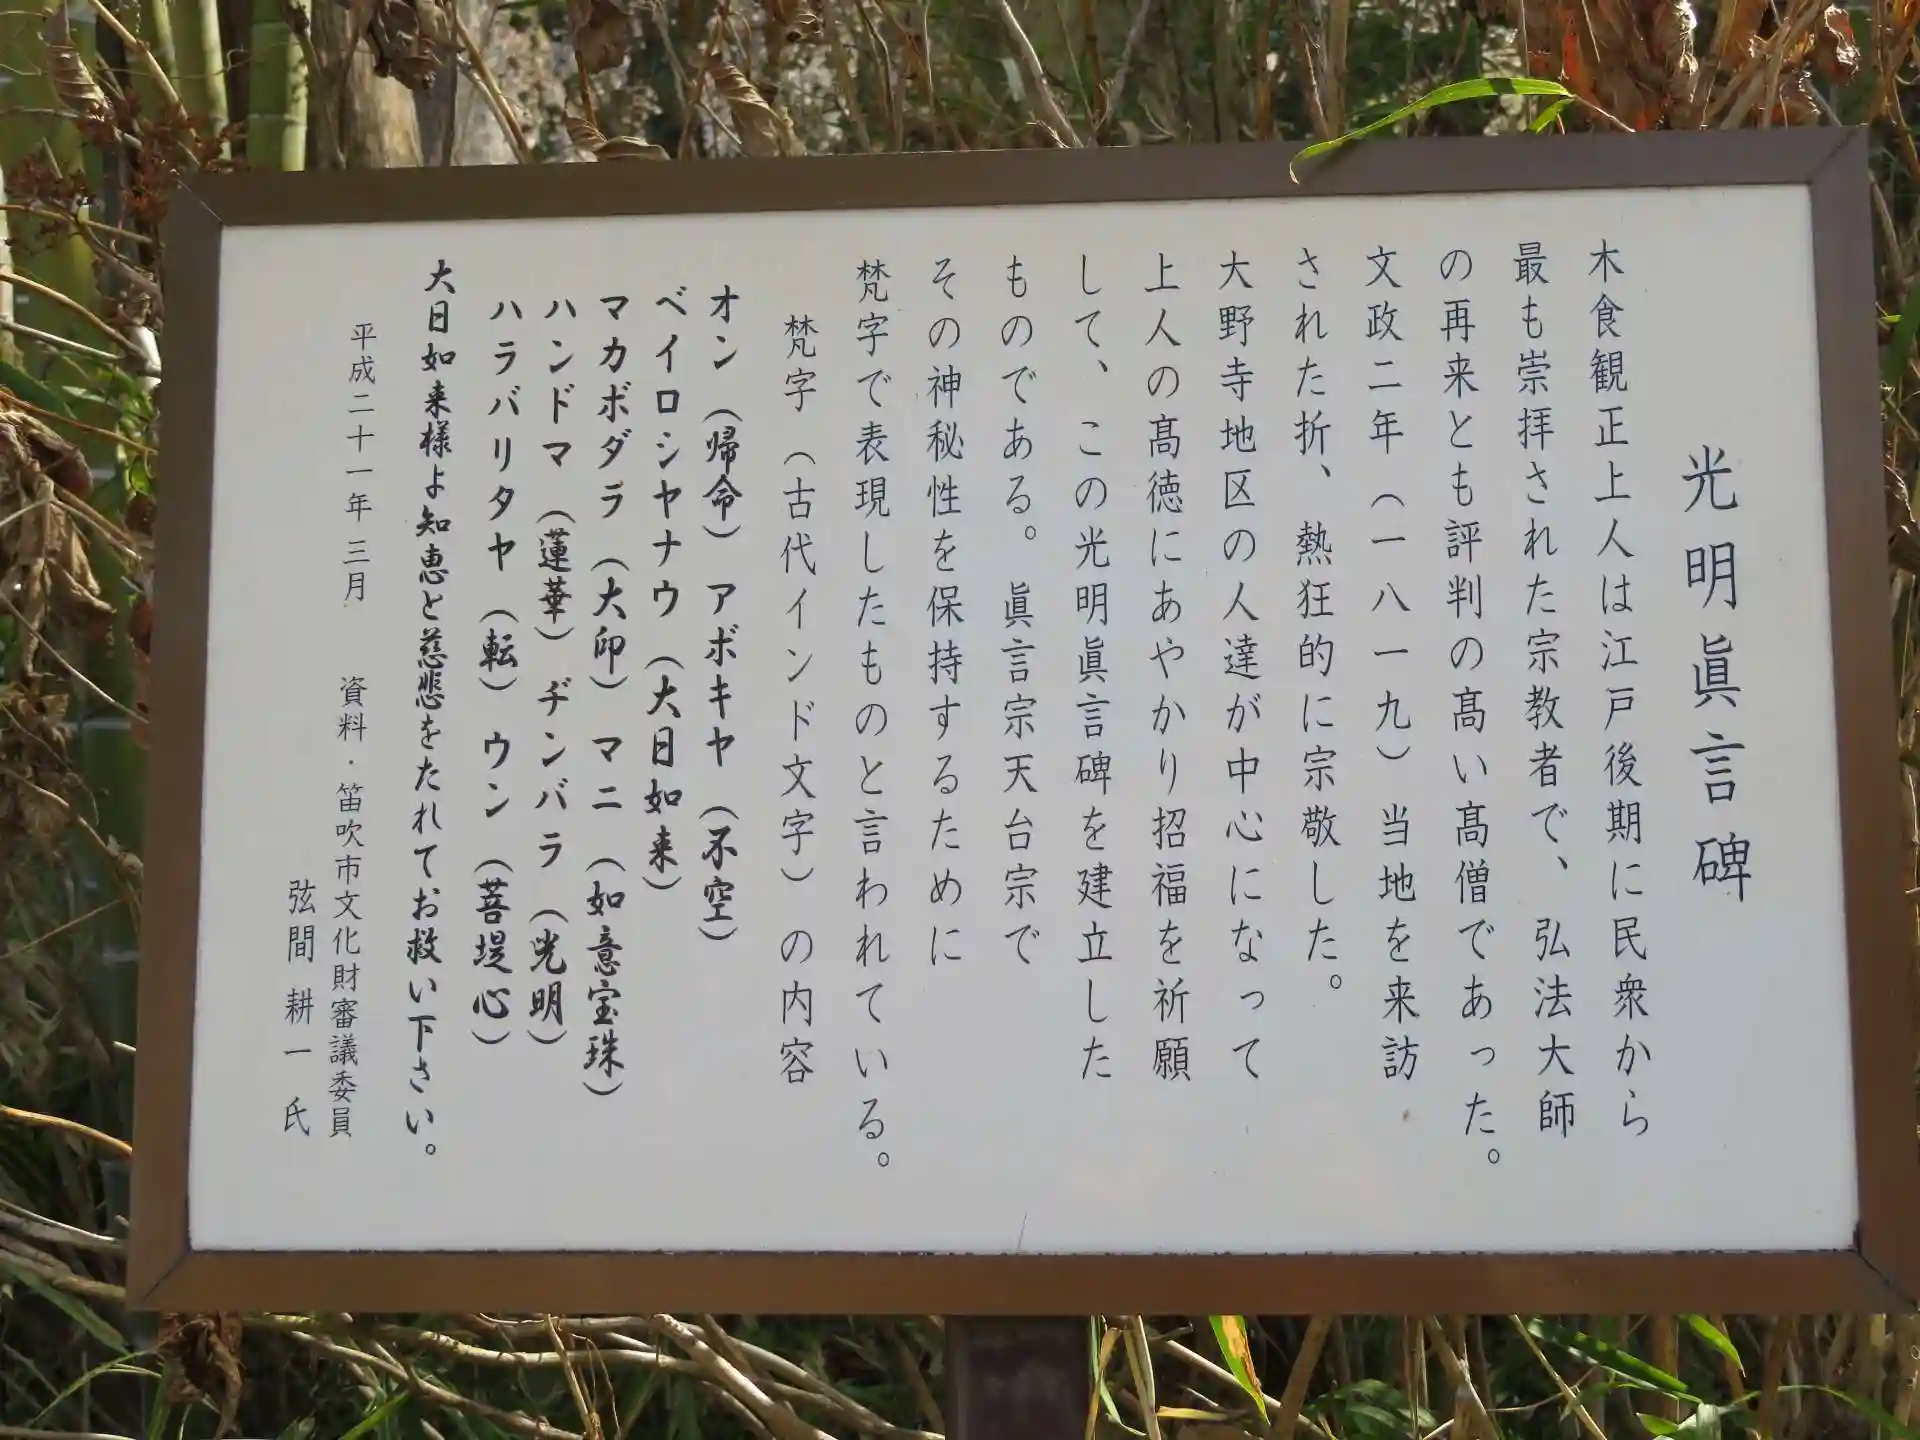 光明眞言碑
木食観正上人は江戸後期に民衆から
最も崇拝された宗教者で、弘法大師
の再来とも評判の高い高僧であった。
文政二年（一八一九）当地を来訪
された折、熱狂的に宗敬した。
大野寺地区の人達が中心になって
上人の髙徳にあやかり招福を祈願
して、この光明眞言碑を建立した
ものである。眞言宗天台宗で
その神秘性を保持するために
梵字で表現したものと言われている。
梵字（古代インド文字）の内容
オン（帰命）アボキヤ（不空）
ベイロシヤナウ（大日如来）
マカボダラ（大印）マニ（如意宝珠）
ハンドマ（蓮華）ヂンバラ（光明）
ハラバリタヤ（転）ウン（菩堤心）
大日如来様よ知恵と慈悲をたれてお救い下さい。
平成二十一年三月　資料・笛吹市文化財審議委員
弦間耕一氏